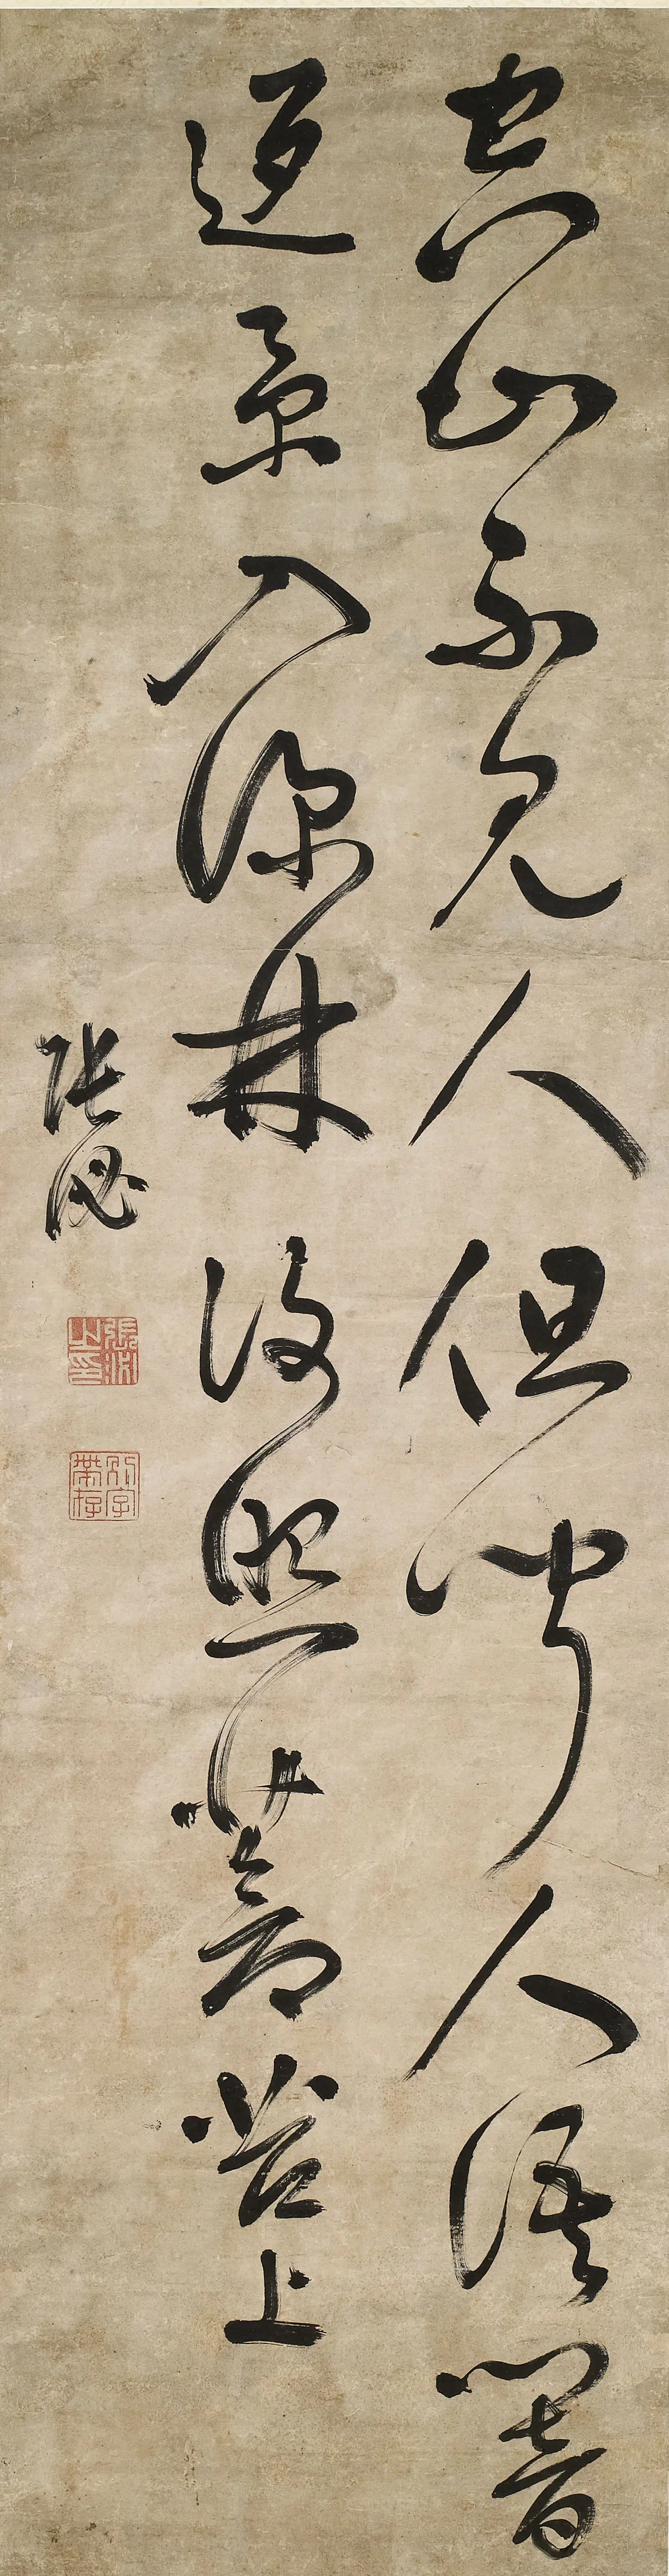 空山不見人但聞人語響
返景入深林復照苔上
張